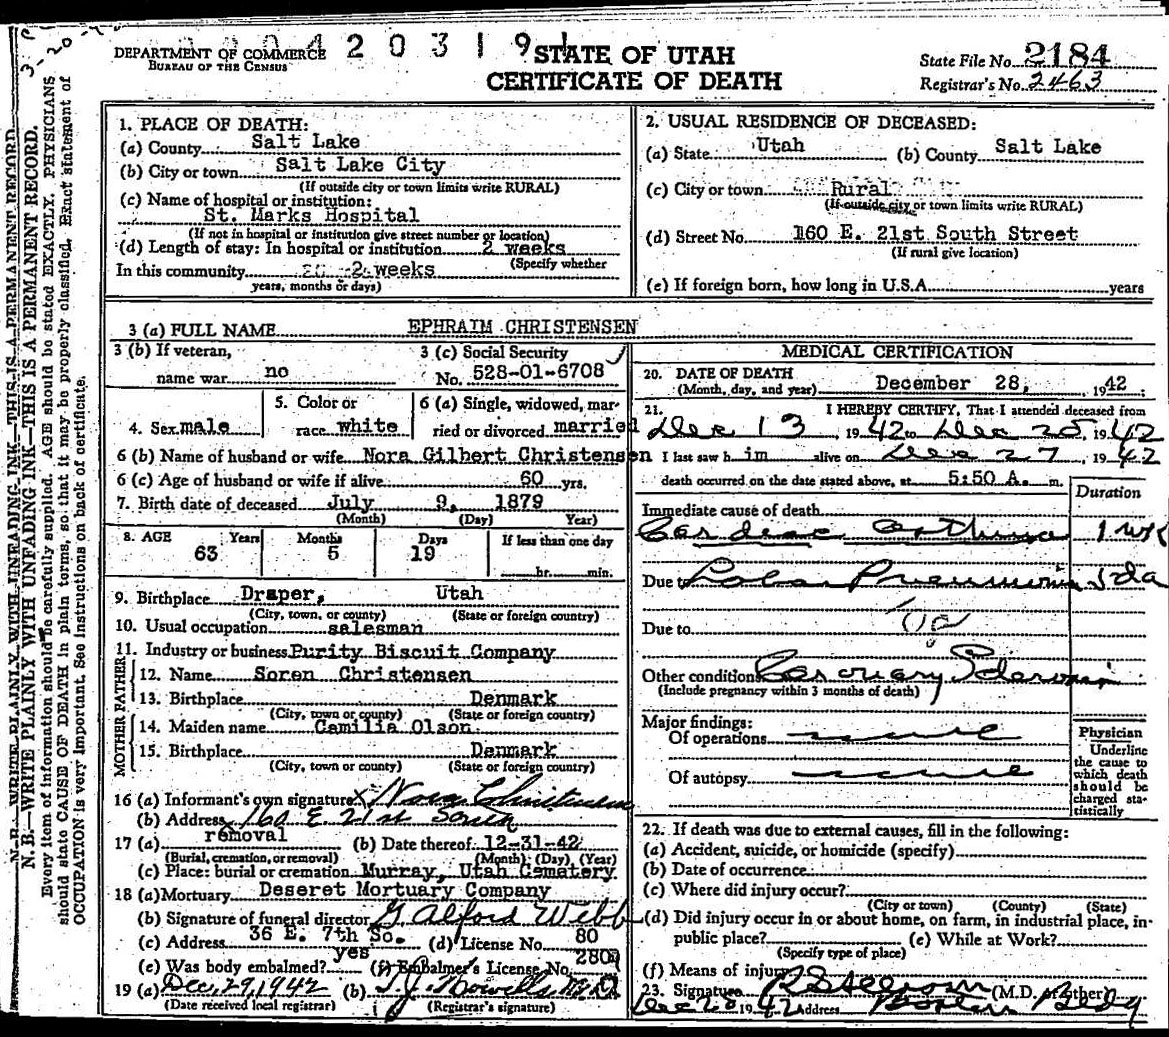 DEPARTMENT OF COMMERCE
BUREAU OF THE CENSUS
4 2 0 3 1 9 1
STATE OF UTAH
CERTIFICATE OF DEATH
State File No. 2184
Registrar's No. 2463
N. B.—WRITE PLAINLY WITH UNFADING INK—THIS IS A PERMANENT RECORD.
N. B.—WRITE PLAINLY WITH UNFADING INK—THIS IS A PERMANENT RECORD.
Every item of information should be carefully supplied. AGE should be stated EXACTLY. PHYSICIANS
should state CAUSE OF DEATH in plain terms, so that it may be properly classified. Exact statement of
OCCUPATION is very important. See instructions on back of certificate.
1. PLACE OF DEATH:
(a) County Salt Lake
(b) City or town Salt Lake City
(If outside city or town limits write RURAL)
(c) Name of hospital or institution:
St. Marks Hospital
(If not in hospital or institution give street number or location)
(d) Length of stay: In hospital or institution 2 weeks
(Specify whether
In this community 2 weeks
years, months or days)
2. USUAL RESIDENCE OF DECEASED:
(a) State Utah (b) County Salt Lake
(c) City or town Rural
(If outside city or town limits write RURAL)
(d) Street No. 160 E. 21st South Street
(If rural give location)
(e) If foreign born, how long in U.S.A. years
3 (a) FULL NAME EPHRAIM CHRISTENSEN
3 (b) If veteran,
name war no
3 (c) Social Security
No. 528-01-6708
4. Sex male
5. Color or
race white
6 (a) Single, widowed, mar-
ried or divorced married
6 (b) Name of husband or wife Nora Gilbert Christensen
6 (c) Age of husband or wife if alive 60 yrs.
7. Birth date of deceased July 9, 1879
(Month) (Day) Year)
8. AGE Years Months Days If less than one day
63 5 19
hr. min.
9. Birthplace Draper, Utah
(City, town, or county) (State or foreign country)
10. Usual occupation salesman
11. Industry or business Purity Biscuit Company
FATHER
12. Name Soren Christensen
13. Birthplace Denmark
(City, town or county) (State or foreign country)
MOTHER
14. Maiden name Camilia Olson
15. Birthplace Denmark
(City, town or county) (State or foreign country)
16 (a) Informant's own signature x Nora Christensen
(b) Address 160 E. 21st South
17 (a) removal (b) Date thereof 12-31-42
(Burial, cremation, or removal) (Month) (Day), (Year)
(c) Place: burial or cremation Murray, Utah Cematery
18 (a) Mortuary Deseret Mortuary Company
(b) Signature of funeral director G. Alford Webb
(c) Address 36 E. 7th So. (d) License No. 80
(e) Was body embalmed? yes (f) Embalmer's License No.
19 (a) Dec. 29, 1942 (b) T. J. Howells M.D.
(Date received local registrar) (Registrar's signature)
MEDICAL CERTIFICATION
20. DATE OF DEATH
(Month, day, and year) December 28, 1942
21. I HEREBY CERTIFY, That I attended deceased from
Dec 13, 1942 to Dec 28, 1942
I last saw h im alive on Dec 27, 1942
death occurred on the date stated above, at 5:50 A. m.
Duration
Immediate cause of death
Cardiac asthma 1 wk
Due to Lobar Pneumonia 5 da
Due to 108
Other conditions Coronary Sclerosis
(Include pregnancy within 3 months of death)
Major findings:
Of operations none
Of autopsy none
Physician
Underline
the cause to
which death
should be
charged sta-
tistically
22. If death was due to external causes, fill in the following:
(a) Accident, suicide, or homicide (specify)
(b) Date of occurrence
(c) Where did injury occur?
(City or town) (County) (State)
(d) Did injury occur in or about home, on farm, in industrial place, in
public place? (e) While at Work?
(Specify type of place)
(f) Means of injury
23. Signature R S Allison (M.D. or other)
Dec 28 1942 Address Boston Bldg